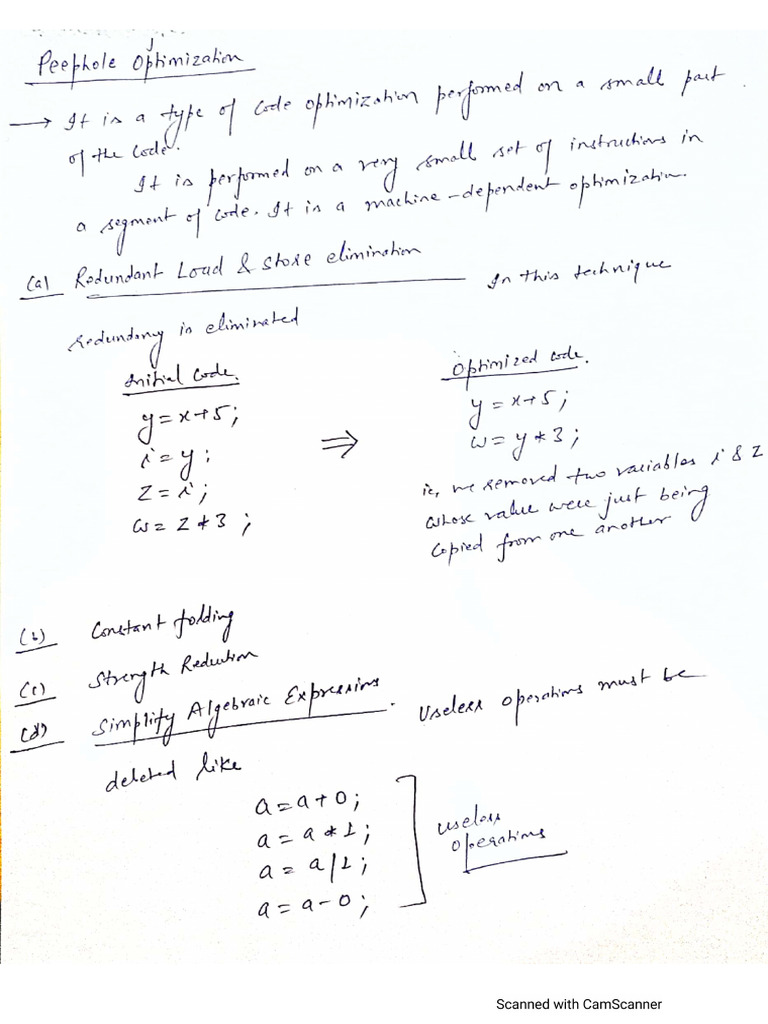 Peephole Optimization
→ It is a type of code optimization performed on a small part
of the code.
It is performed on a very small set of instructions in
a segment of code. It is a machine-dependent optimization.
(a) Redundant Load & Store elimination In this technique
redundancy is eliminated
Initial code.
y = x+5;
i = y;
z = i;
w = z * 3;
⇒
Optimized code.
y = x+5;
w = y * 3;
ie, we removed two variables i & z
whose value were just being
copied from one another
(b) Constant folding
(c) Strength Reduction
(d) Simplify Algebraic Expressions. Useless operations must be
deleted like
a = a+0;
a = a * 1;
a = a/1;
a = a-0;
useless
operations
Scanned with CamScanner